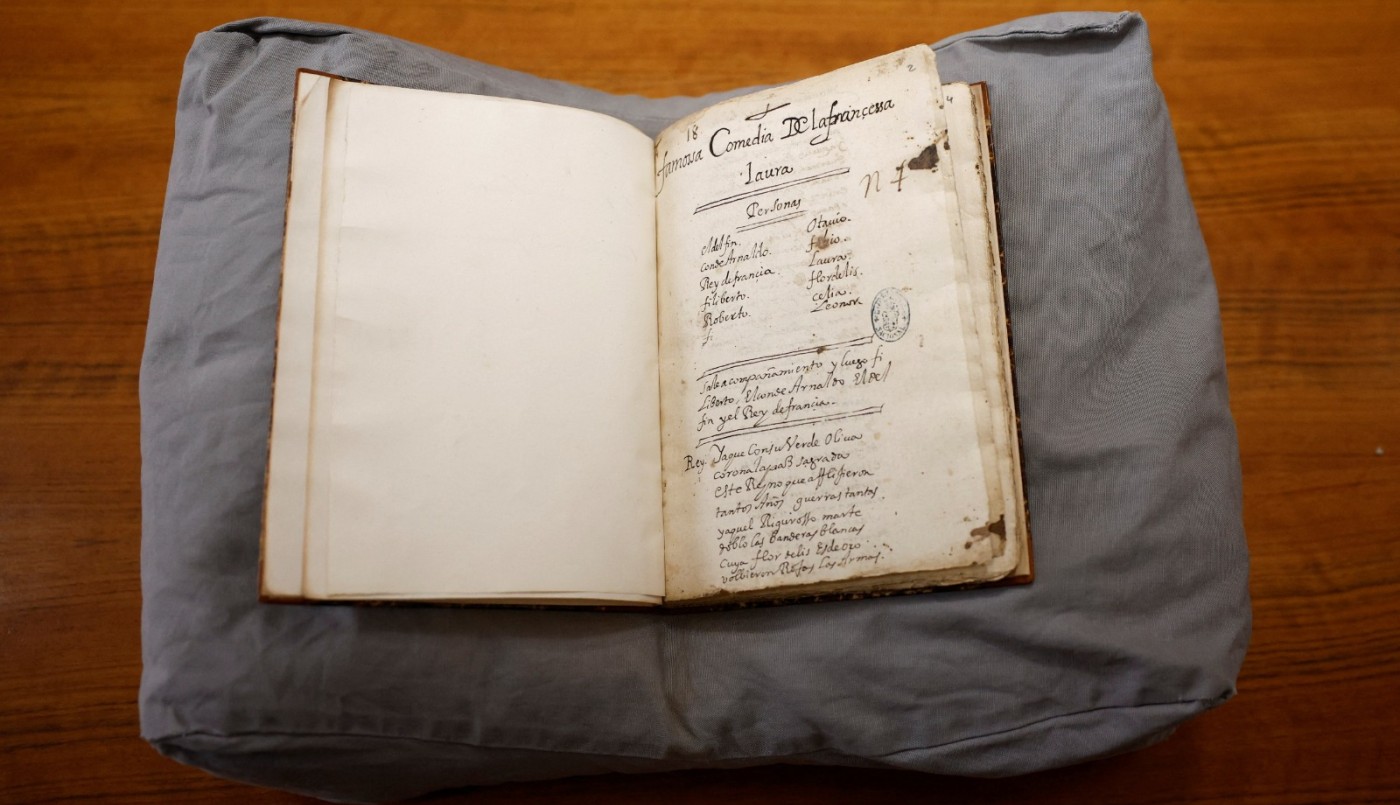 2
4
18
famossa Comedia De la françessa
Laura
n 7
Personas
el delfin. Otauio.
conde Arnaldo. fabio.
Rey de francia. Laura.
filiberto. flordelis.
Roberto. celia.
fi Leonora
Sale acompañamiento y luego fi
Liberto, El conde Arnaldo El Del
fin y el Rey de francia.
Rey. Ya que Con su Verde Oliua
corona la paz sagrada
este Reyno que affligieron
tantos Años guerras tantas
ya que el Rigurosso marte
doblo las banderas blancas
cuya flor de lis Es de oro
volbieron Rojas las Armas.